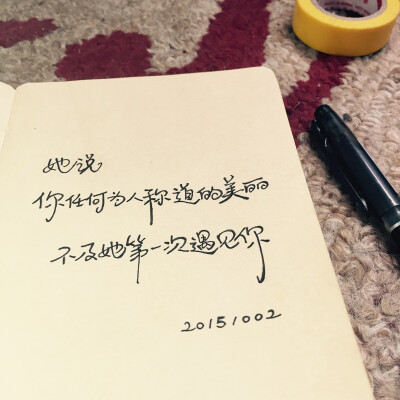 她说
你任何为人称道的美丽
不及她第一次遇见你
20151002